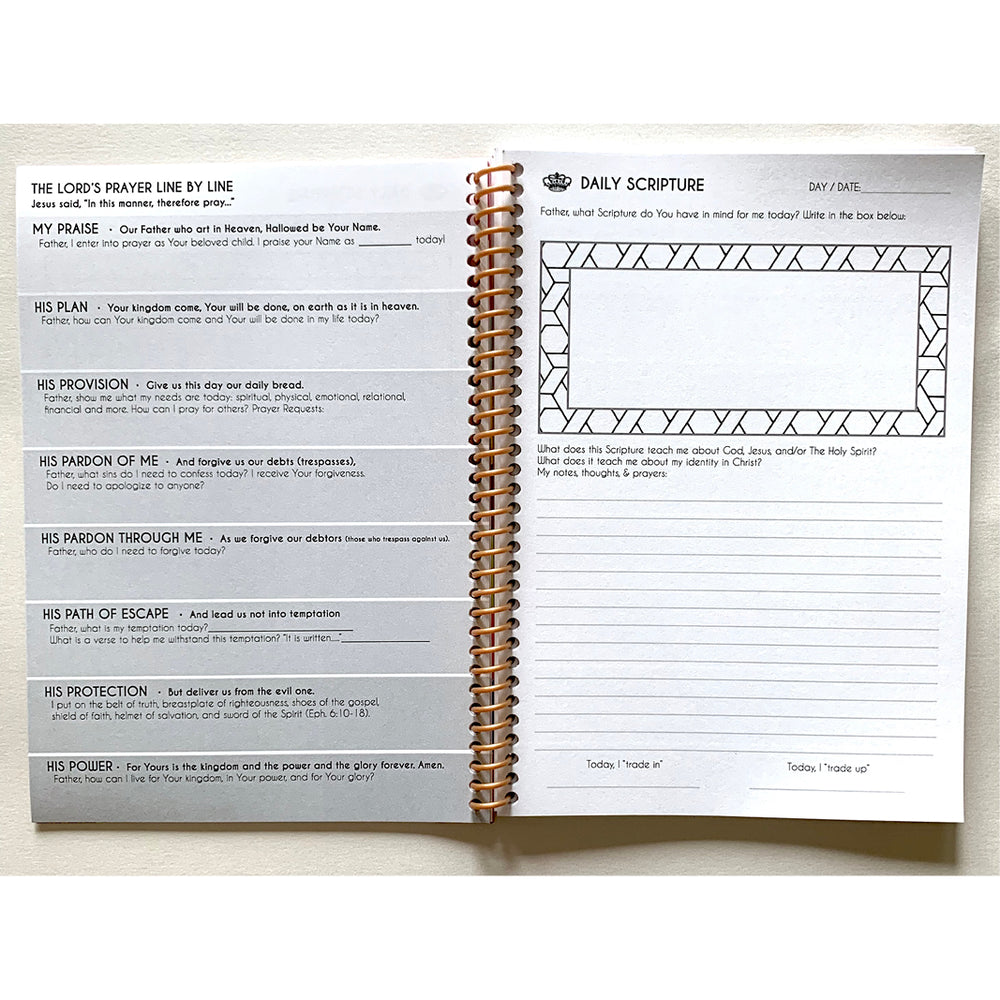 THE LORD'S PRAYER LINE BY LINE
Jesus said, "In this manner, therefore pray..."
MY PRAISE • Our Father who art in Heaven, Hallowed be Your Name.
Father, I enter into prayer as Your beloved child. I praise your Name as __________ today!
HIS PLAN • Your kingdom come, Your will be done, on earth as it is in heaven.
Father, how can Your kingdom come and Your will be done in my life today?
HIS PROVISION • Give us this day our daily bread.
Father, show me what my needs are today: spiritual, physical, emotional, relational,
financial and more. How can I pray for others? Prayer Requests:
HIS PARDON OF ME • And forgive us our debts (trespasses),
Father, what sins do I need to confess today? I receive Your forgiveness.
Do I need to apologize to anyone?
HIS PARDON THROUGH ME • As we forgive our debtors (those who trespass against us).
Father, who do I need to forgive today?
HIS PATH OF ESCAPE • And lead us not into temptation
Father, what is my temptation today?____________________
What is a verse to help me withstand this temptation? "It is written...."____________________
HIS PROTECTION • But deliver us from the evil one.
I put on the belt of truth, breastplate of righteousness, shoes of the gospel,
shield of faith, helmet of salvation, and sword of the Spirit (Eph. 6:10-18).
HIS POWER • For Yours is the kingdom and the power and the glory forever. Amen.
Father, how can I live for Your kingdom, in Your power, and for Your glory?
DAILY SCRIPTURE
DAY / DATE:____________________
Father, what Scripture do You have in mind for me today? Write in the box below:
What does this Scripture teach me about God, Jesus, and/or The Holy Spirit?
What does it teach me about my identity in Christ?
My notes, thoughts, & prayers:
Today, I "trade in"
Today, I "trade up"